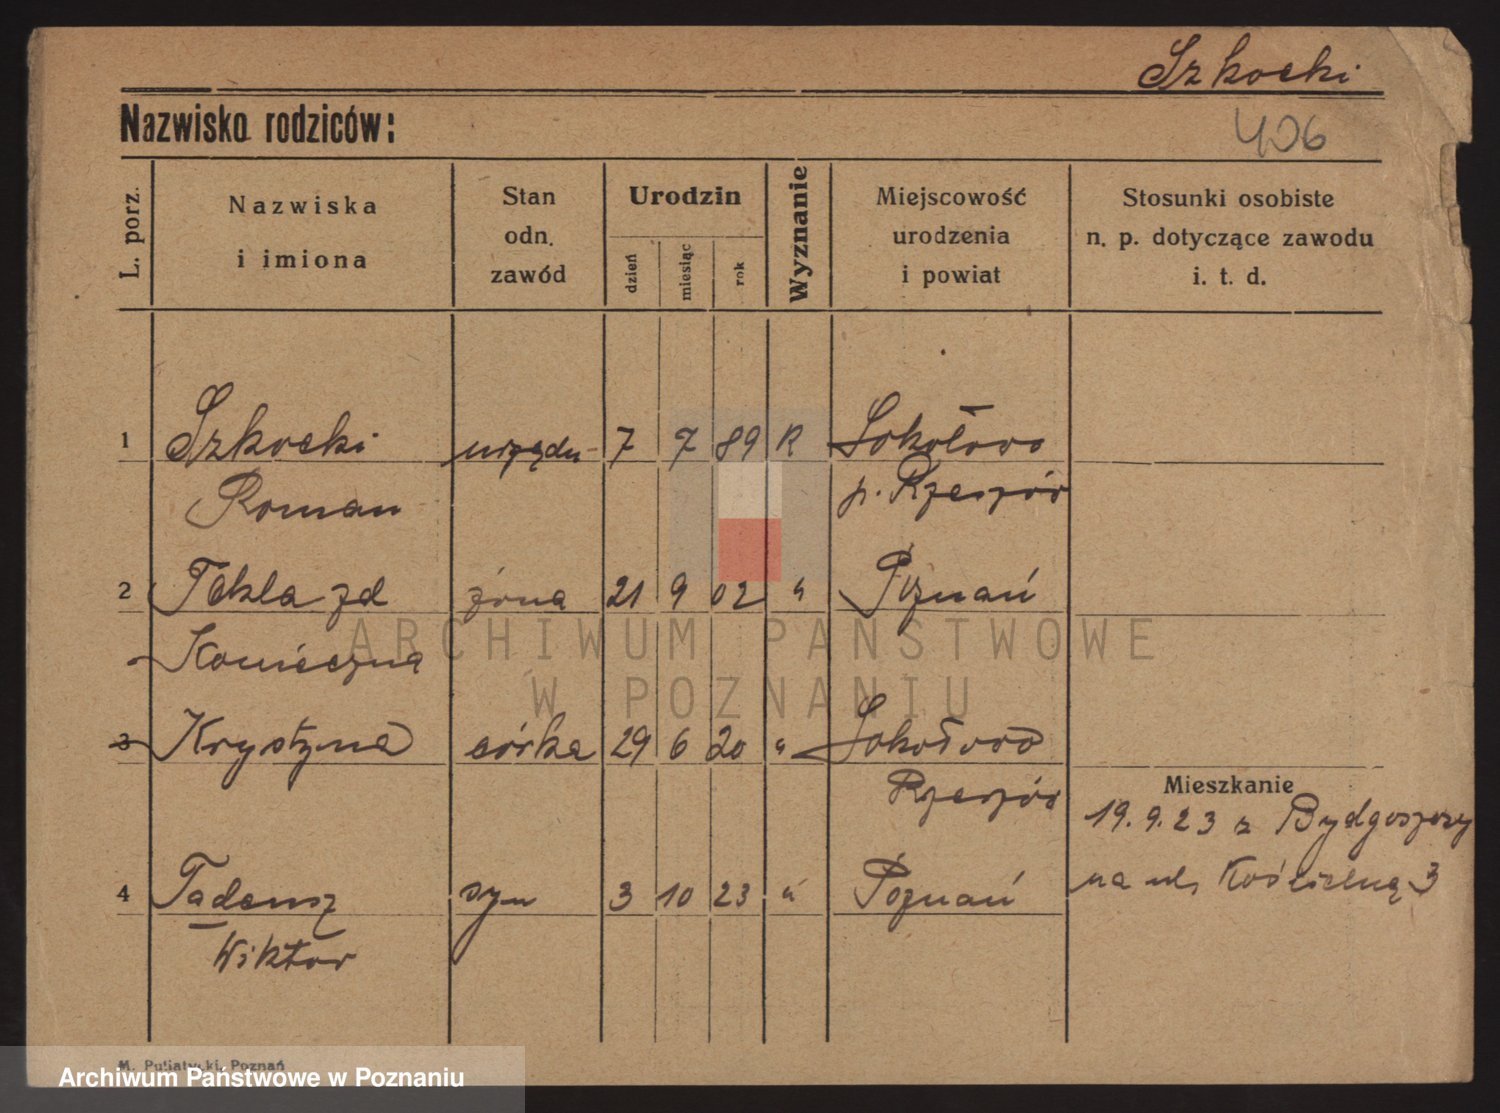 Szkocki
Nazwisko rodziców:
406
L. porz.
Nazwiska
i imiona
Stan
odn.
zawód
Urodzin
dzień
miesiąc
rok
Wyznanie
Miejscowość
urodzenia
i powiat
Stosunki osobiste
n. p. dotyczące zawodu
i. t. d.
1 Szkocki urzędn 7 7 89 R Sokołowo
Roman p. Rzeszów
2 Tekla zd żona 21 9 02 " Poznań
Konieczna
3 Krystyna córka 29 6 20 " Sokołowo
Rzeszów
Mieszkanie
19.9.23 z Bydgoszczy
na ul. Kościelną 3
4 Tadeusz syn 3 10 23 " Poznań
Wiktor
M. Putiatycki, Poznań
ARCHIWUM PAŃSTWOWE
W POZNANIU
Archiwum Państwowe w Poznaniu